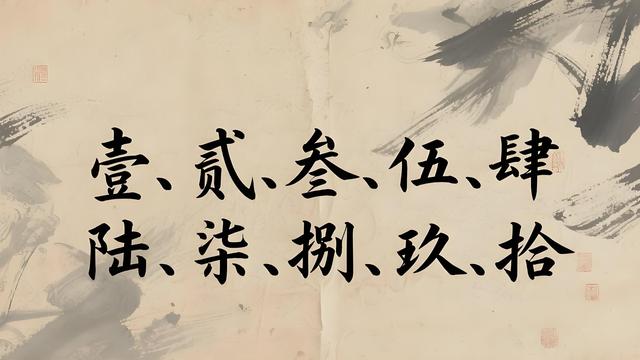 壹、贰、叁、伍、肆
陆、柒、捌、玖、拾